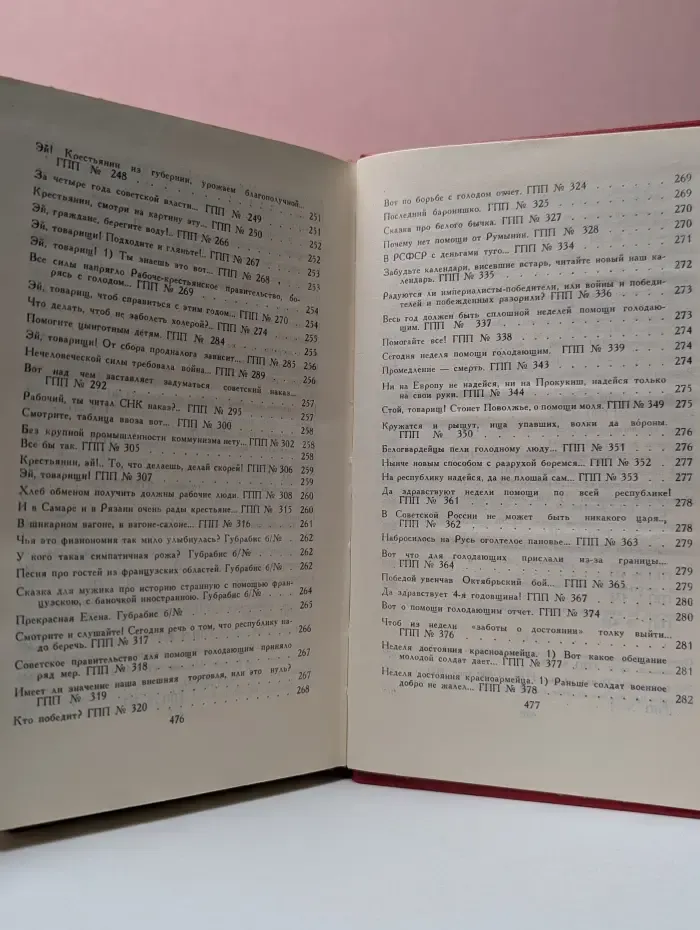 Эй! Крестьянин из губернии, урожаем благополучной...
ГПП № 248 . . . . . . . . . . 251
За четыре года советской власти... ГПП № 249 . . . 251
Крестьянин, смотри на картину эту... ГПП № 250 . . 252
Эй, граждане, берегите воду!.. ГПП № 266 . . . 252
Эй, товарищи! Подходите и гляньте!.. ГПП № 267 . . 252
Эй, товарищ! 1) Ты знаешь это вот... ГПП № 268 . . 253
Все силы напрягло Рабоче-крестьянское правительство, бо-
рясь с голодом... ГПП № 269 . . . . 253
Эй, товарищ, чтоб справиться с этим годом... ГПП № 270 254
Что делать, чтоб не заболеть холерой?.. ГПП № 274 . . 254
Помогите цынготным детям. ГПП № 284 . . . . 255
Эй, товарищи! От сбора продналога зависит... ГПП № 285 256
Нечеловеческой силы требовала война... ГПП № 289 . . 256
Вот над чем заставляет задуматься советский наказ...
ГПП № 292 . . . . . . . . . . 257
Рабочий, ты читал СНК наказ?.. ГПП № 295 . . . 257
Смотрите, таблица ввоза вот... ГПП № 300 . . . . 258
Без крупной промышленности коммунизма нету... ГПП № 302 258
Все бы так. ГПП № 305 . . . . . . . 258
Крестьянин, ай!.. То, что делаешь, делай скорей! ГПП № 306 259
Эй, товарищи! ГПП № 307 . . . . . . . 259
Хлеб обменом получить должны рабочие люди. ГПП № 308 260
И в Самаре и в Рязани очень рады крестьяне... ГПП № 315 260
В шикарном вагоне, в вагоне-салоне... ГПП № 316 . . 261
Чья это физиономия так мило улыбнулась? Губрабис б/№ . 262
У кого такая симпатичная рожа? Губрабис б/№ . . . 262
Песня про гостей из французских областей. Губрабис б/№ . 262
Сказка для мужика про историю странную с помощью фран-
цузскою, с баночкой иностранною. Губрабис б/№ . . 264
Прекрасная Елена. Губрабис б/№ . . . . . 265
Смотрите и слушайте! Сегодня речь о том, что республику на-
до беречь. ГПП № 317 . . . . . . . 266
Советское правительство для помощи голодающим приняло
ряд мер. ГПП № 318 . . . . . . . 267
Имеет ли значение наша внешняя торговля, или это нуль?
ГПП № 319 . . . . . . . . . 267
Кто победит? ГПП № 320 . . . . . . . 268
476
Вот по борьбе с голодом отчет. ГПП № 324 . . . . 269
Последний баронишко. ГПП № 325 . . . . . . 270
Сказка про белого бычка. ГПП № 327 . . . . . 270
Почему нет помощи от Румынии. ГПП № 328 . . . 270
В РСФСР с деньгами туго... ГПП № 334 . . . . . 271
Забудьте календари, висевшие встарь, читайте новый наш ка-
лендарь. ГПП № 335 . . . . . . . . 272
Радуются ли империалисты-победители, или войны и победи-
телей и побежденных разорили? ГПП № 336 . . . . 273
Весь год должен быть сплошной неделей помощи голодаю-
щим. ГПП № 337 . . . . . . . . . 273
Помогайте все! ГПП № 338 . . . . . . . 274
Сегодня неделя помощи голодающим. ГПП № 339 . . . 274
Промедление — смерть. ГПП № 343 . . . . . . 274
Ни на Европу не надейся, ни на Прокукиш, надейся только
на свои руки. ГПП № 344 . . . . . . . 275
Стой, товарищ! Стонет Поволжье, о помощи моля. ГПП № 349 275
Кружатся и рыщут, ища упавших, волки да во́роны.
ГПП № 350 . . . . . . . . . . 276
Белогвардейцы пели голодному люду... ГПП № 351 . . . 276
Нынче новым способом с разрухой боремся... ГПП № 352 . . 277
На республику надейся, да не плошай сам... ГПП № 353 . . 277
Да здравствуют недели помощи по всей республике!
ГПП № 361 . . . . . . . . . . 278
В Советской России не может быть никакого царя..,
ГПП № 362 . . . . . . . . . . 278
Набросилось на Русь оголтелое пановье... ГПП № 363 . . 279
Вот что для голодающих прислали из-за границы...
ГПП № 364 . . . . . . . . . . 279
Победой увенчав Октябрьский бой... ГПП № 365 . . . 279
Да здравствует 4-я годовщина! ГПП № 367 . . . . 280
Вот о помощи голодающим отчет. ГПП № 374 . . . . 280
Чтоб из недели «заботы о достоянии» толку выйти...
ГПП № 376 . . . . . . . . . . 281
Неделя достояния красноармейца. 1) Вот какое обещание
молодой солдат дает... ГПП № 377 . . . . . 281
Неделя достояния красноармейца. 1) Раньше солдат военное
добро не жалел... ГПП № 378 . . . . . . 282
477